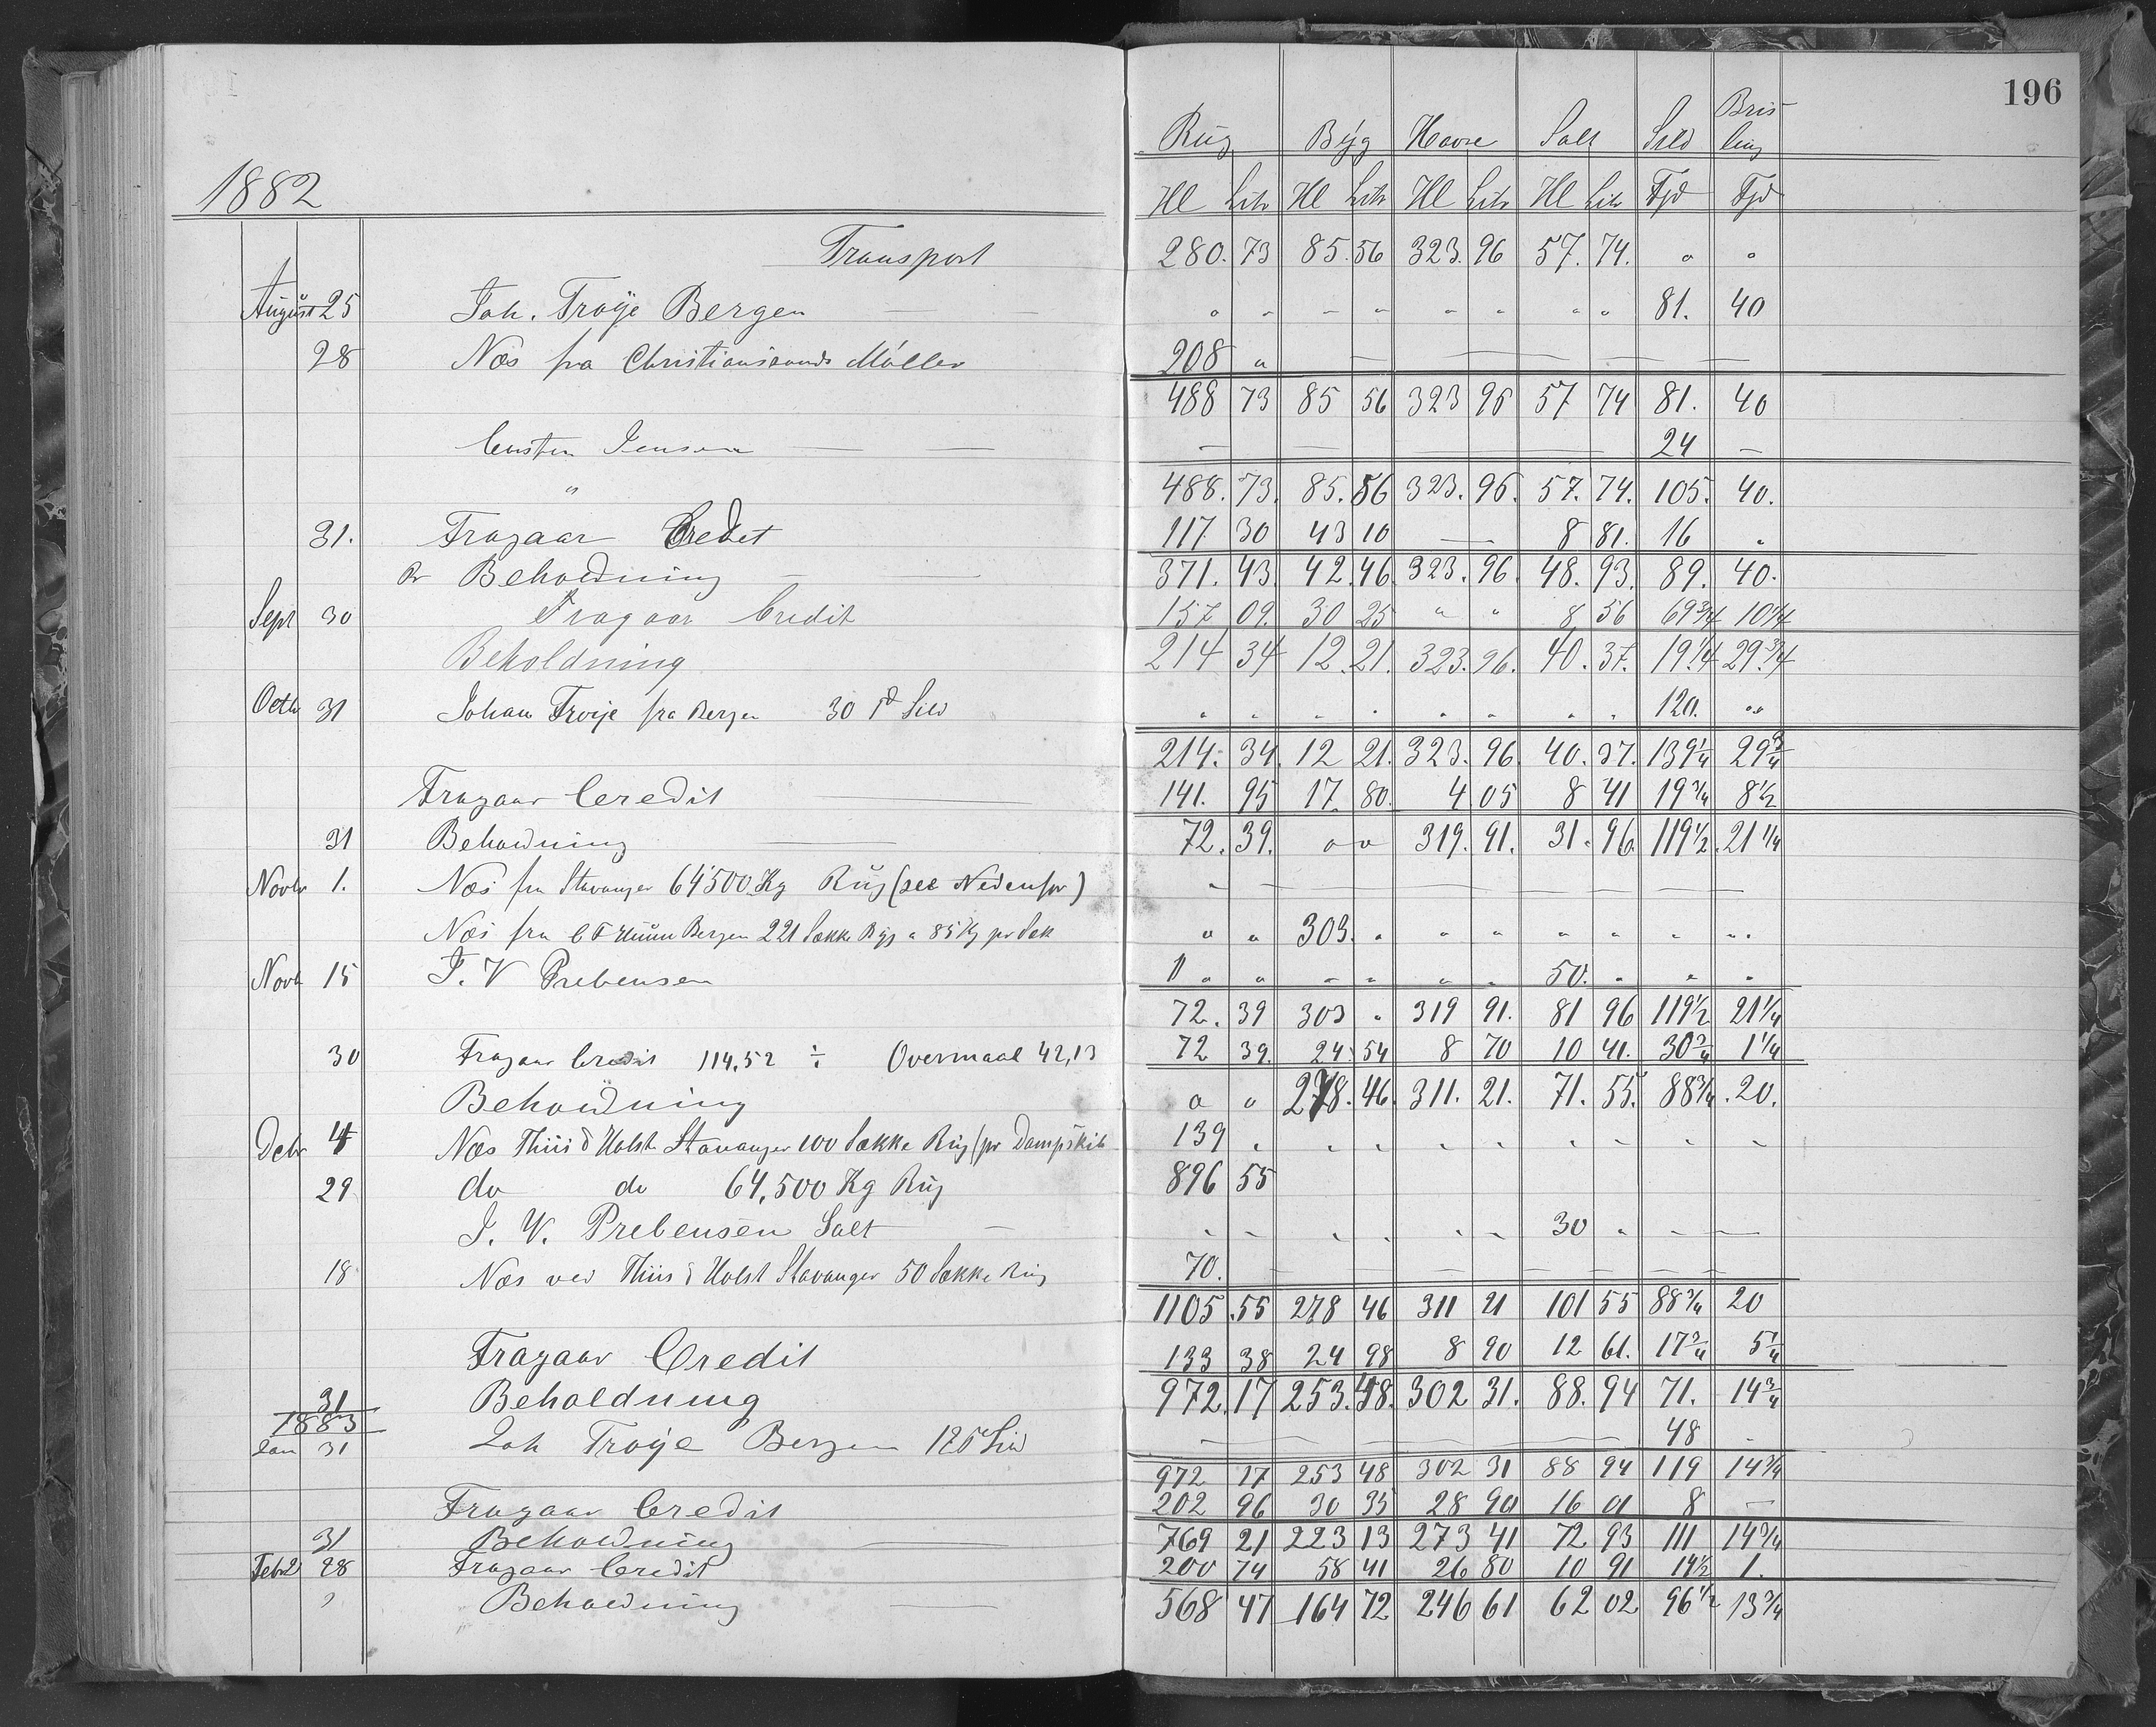 196
1882 Rug Byg Havre Salt Sild Brisling
Hl Litr Hl Litr Hl Litr Hl Litr Fjd Fjd
Transport 280. 73 85. 56 323. 96 57. 74. " "
August 25 Joh. Troye Bergen " " " " " " " " 81. 40
28 Næs fra Christianssands Møller 208 "
488 73 85 56 323 96 57 74 81. 40
Jensen — 24 —
" 488. 73. 85. 56 323. 96. 57. 74. 105. 40.
31. Fragaar Credit 117 30 43 10 — 8 81. 16 "
Pr Beholdning 371. 43. 42. 46. 323. 96. 48. 93. 89. 40.
Sept 30 Fragaar Credit 157 09. 30 25 " " 8 56 69 3/4 10 1/4
Beholdning 214 34 12. 21. 323. 96. 40. 37. 19 1/4 29 3/4
Octb 31 Johan Troije fra Bergen 30 Sild " " " " " " " " 120. "
214. 34. 12 21. 323. 96. 40. 37. 139 1/4 29 3/4
Fragaar Ceredit 141. 95 17 80. 4 05 8 41 19 3/4 8 1/2
31 Beholdning 72. 39. " " 319. 91. 31. 96. 119 1/2. 21 1/4
Novbr 1. Næs fra Stavanger 64500 Kg Rug (see Nedenfor)
Næs fra C F Bergen 221 Sække Byg a 85 Kg pr Sæk " " 303. " " " " " " "
Novb 15 J. V Prebensen " " " " " " 50. " " "
72. 39 303 " 319 91. 81 96 119 1/2 21 1/4
30 Fragaar Credit 114,52 ÷ Overmaal 42,13 72 39. 24 54 8 70 10 41. 30 3/4 1 1/4
Beholdning " " 278. 46. 311. 21. 71. 55. 88 3/4. 20.
Debr 4 Næs Thiis & Holst Stavanger 100 Sække Rug (pr Dampskib 139 " " " " " " " " "
29 do do 64,500 Kg Rug 896 55
J. W. Prebensen Salt — " " " " " " 30 " " —
18 Næs ved Thiis & Holst Stavanger 50 Sække Rug 70.
1105. 55 278 46 311 21 101 55 88 3/4 20
Fragaar Credit 133 38 24 98 8 90 12 61. 17 3/4 5 1/4
31 Beholdning 972. 17 253. 48. 302 31. 88. 94 71. 14 3/4
1883
Jan 31 Joh Troije Bergen 12 Sild — 48
972 17 253 48 302 31 88 94 119 14 3/4
Fragaar Credit 202 96 30 35 28 90 16 01 8 —
31 Beholdning 769 21 223 13 273 41 72 93 111 14 3/4
Febr 28 Fragaar Credit 200 74 58 41 26 80 10 91 14 1/2 1.
Beholdning 568 47 164 72 246 61 62 02 96 1/2 13 3/4